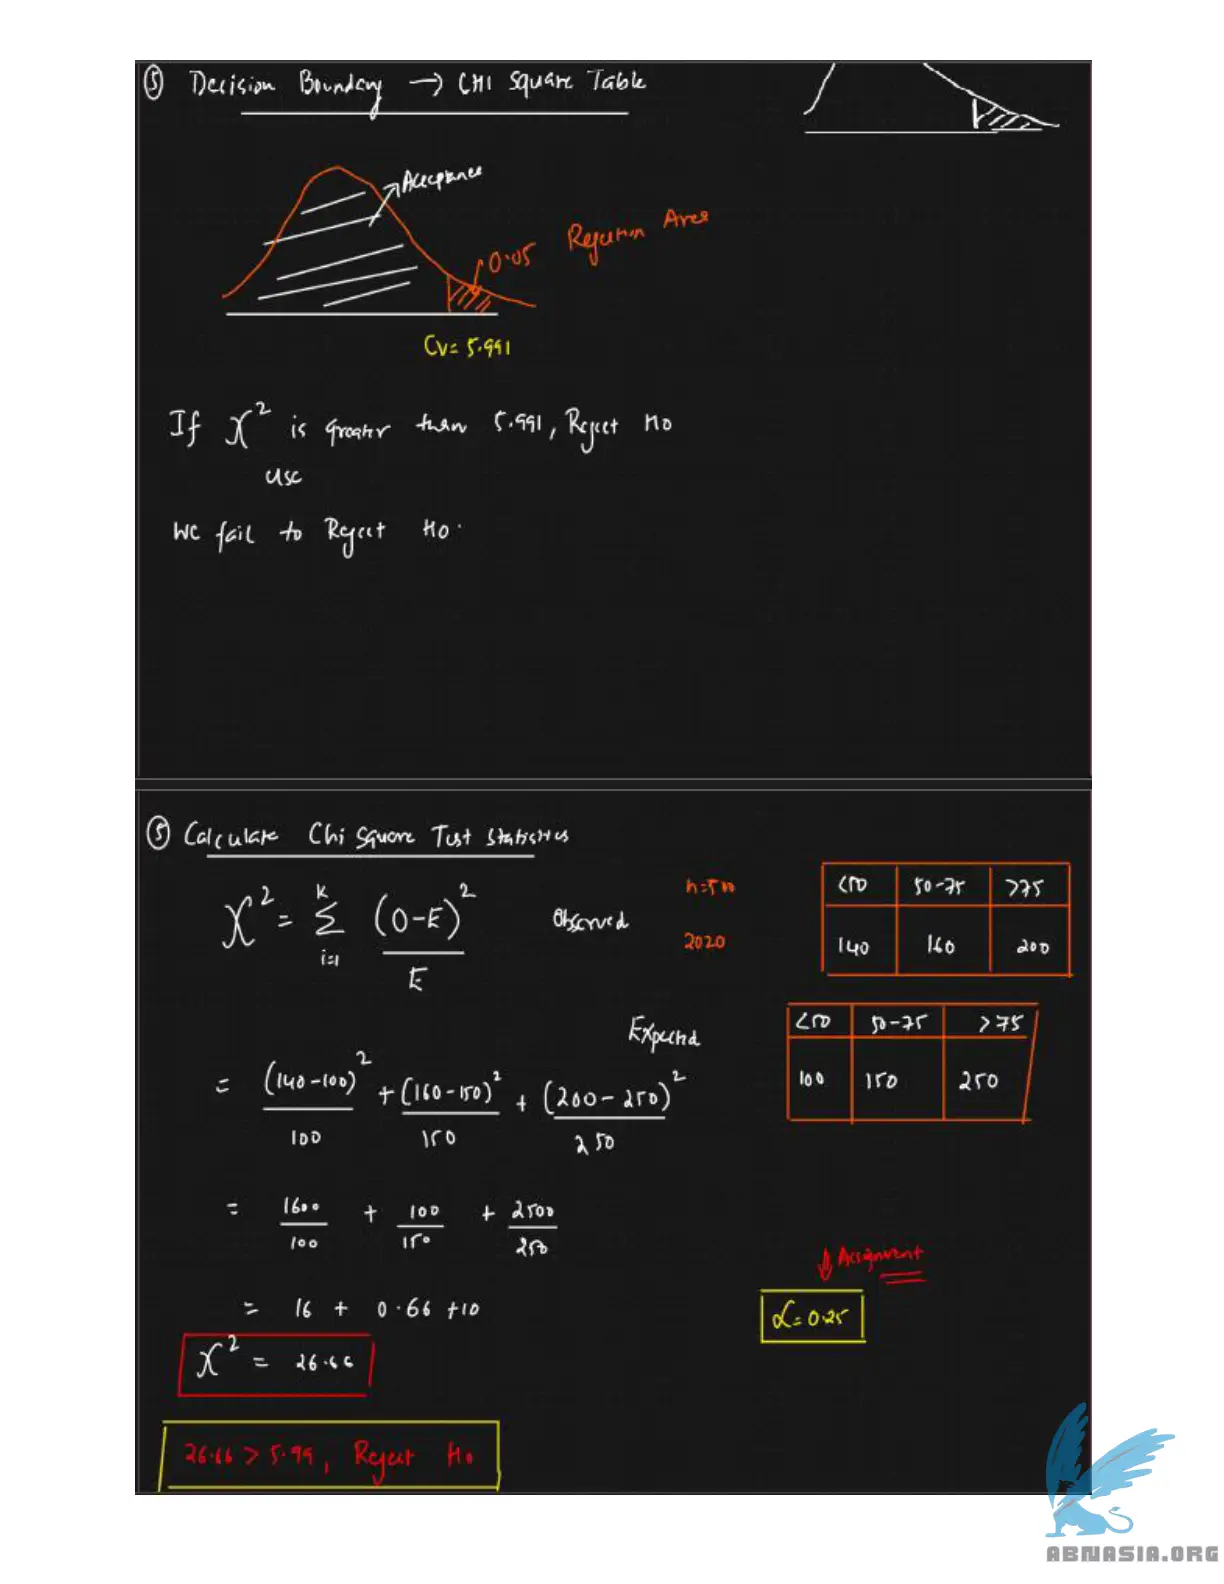 ⑤ Decision Boundary → CHI Square Table
Acceptance
0.05 Rejection Area
CV= 5.991
If χ² is greater than 5.991, Reject H0
else
we fail to Reject H0.
⑤ Calculate Chi Square Test Statistics
χ² = Σ (O-E)² / E
k
i=1
Observed
n=500
2020
<50 50-75 >75
140 160 200
Expected
<50 50-75 >75
100 150 250
= (140-100)²/100 + (160-150)²/150 + (200-250)²/250
= 1600/100 + 100/150 + 2500/250
= 16 + 0.66 +10
↓ Assignment
α=0.25
χ² = 26.66
26.66 > 5.99, Reject H0
ABNASIA.ORG